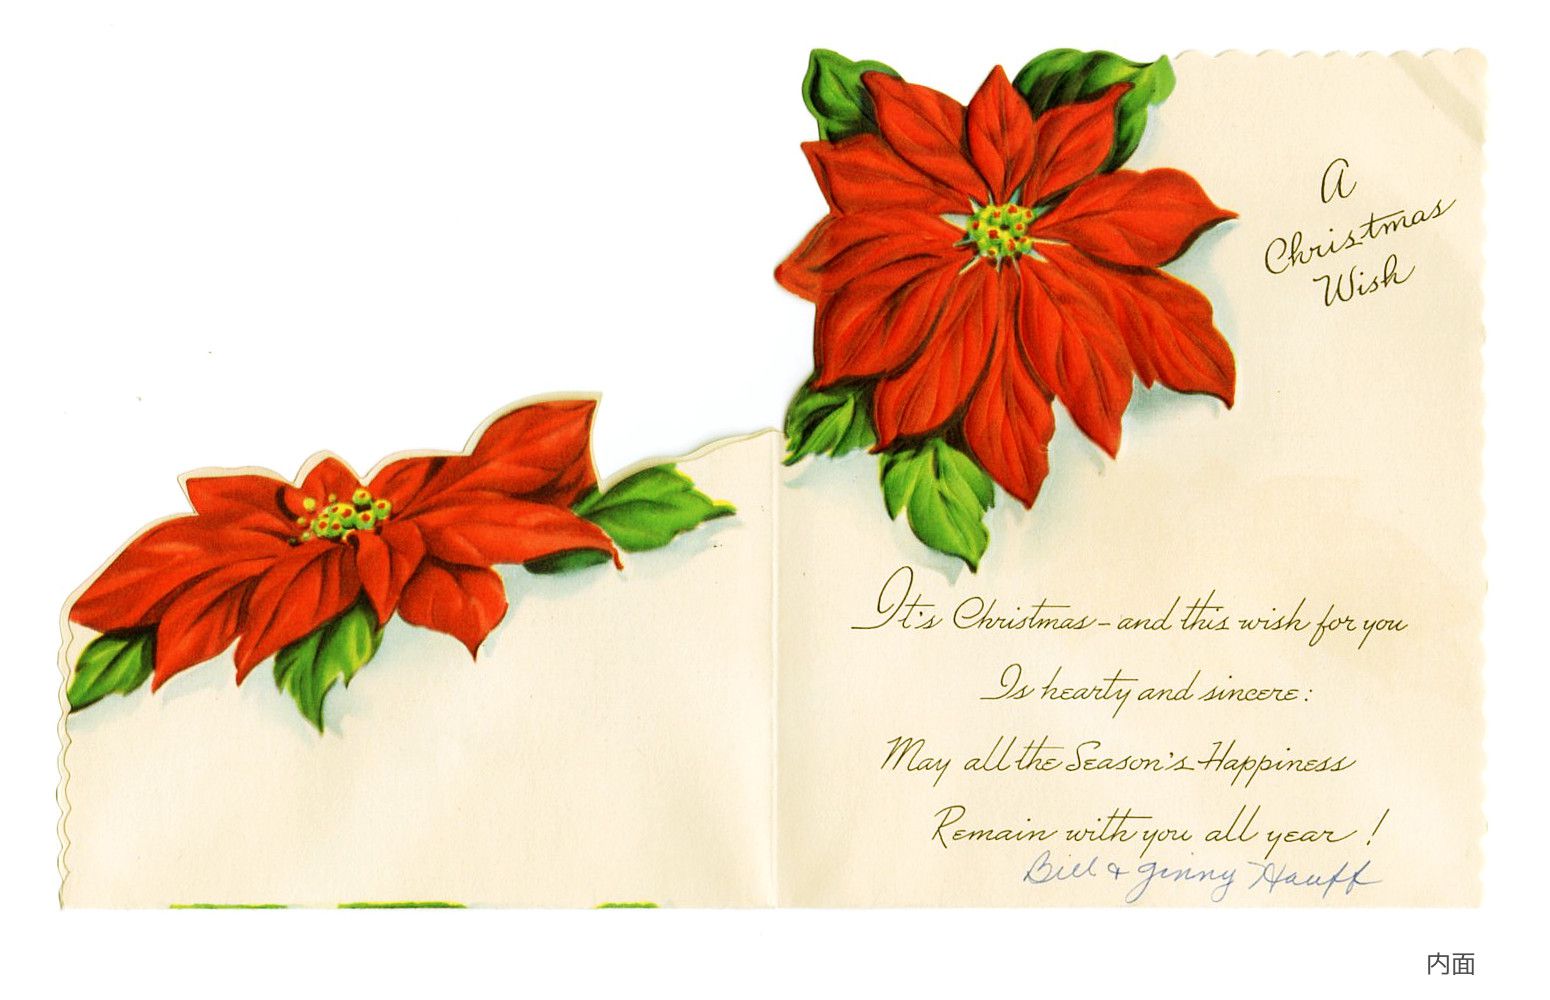 A
Christmas
Wish
It's Christmas – and this wish for you
Is hearty and sincere:
May all the Season's Happiness
Remain with you all year!
Bill & Ginny Hauff
内面